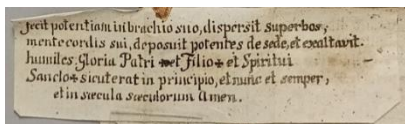 fecit potentiam in brachio suo, dispersit superbos,
mente cordis sui, deposuit potentes de sede, et exaltavit.
humiles. Gloria Patri ✠ et Filio ✠ et Spiritui
Sancto ✠ sicut erat in principio, et nunc et semper,
et in sæcula sæculorum Amen.